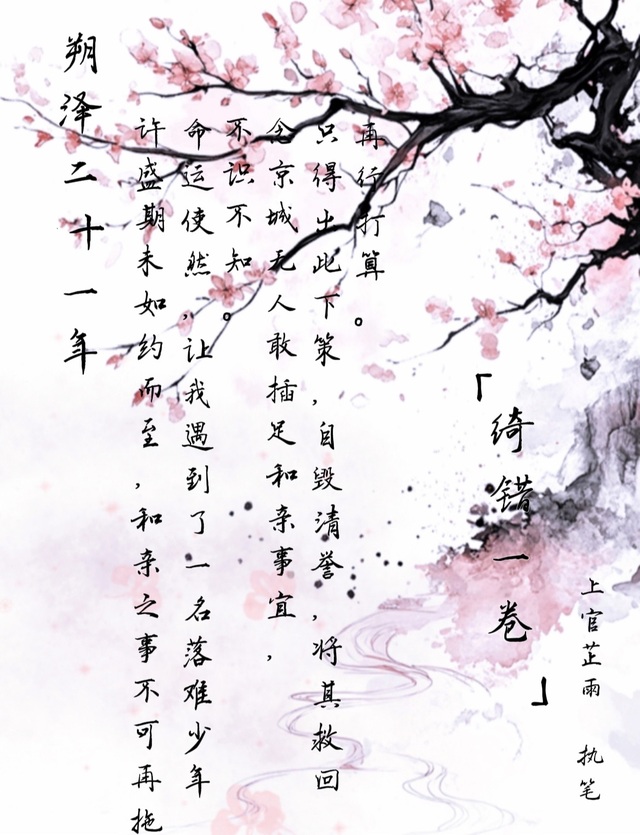 朔泽二十一年
许盛期未如约而至，和亲之事不可再拖
命运使然，让我遇到了一名落难少年
不识不知。
念京城无人敢插足和亲事宜，
只得出此下策，自毁清誉，将其救回
再行打算。
「绮错一卷」
上官芷雨 执笔